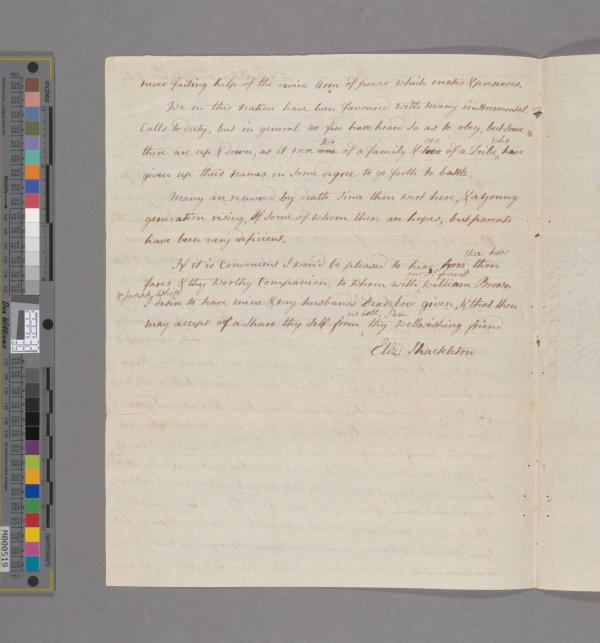 never failing help of the divine arm of power which creates & preserves.
We in this nation have been favoured with many instrumental
Calls to duty, but in general too few have heard so as to obey, but some
there are up & down, as it were two of a family & one of a Tribe, who have
given up their names in some degree to go forth to battle.
Many are removed by death since thou wert here, & a young
generation rising, of some of whom there are hopes, but parents
have been very deficient.
If it is convenient I would be pleased to hear from thee how thou
fares, & thy worthy Companion, to whom with our friend William Brown
& Joseph White
I desire to have mine & my husbands dear love given, & that thou
may accept of a share thy self from us both, I am thy wellwishing friend
Eliz: Shackleton
inches
centimetres
Don Williams
M000519